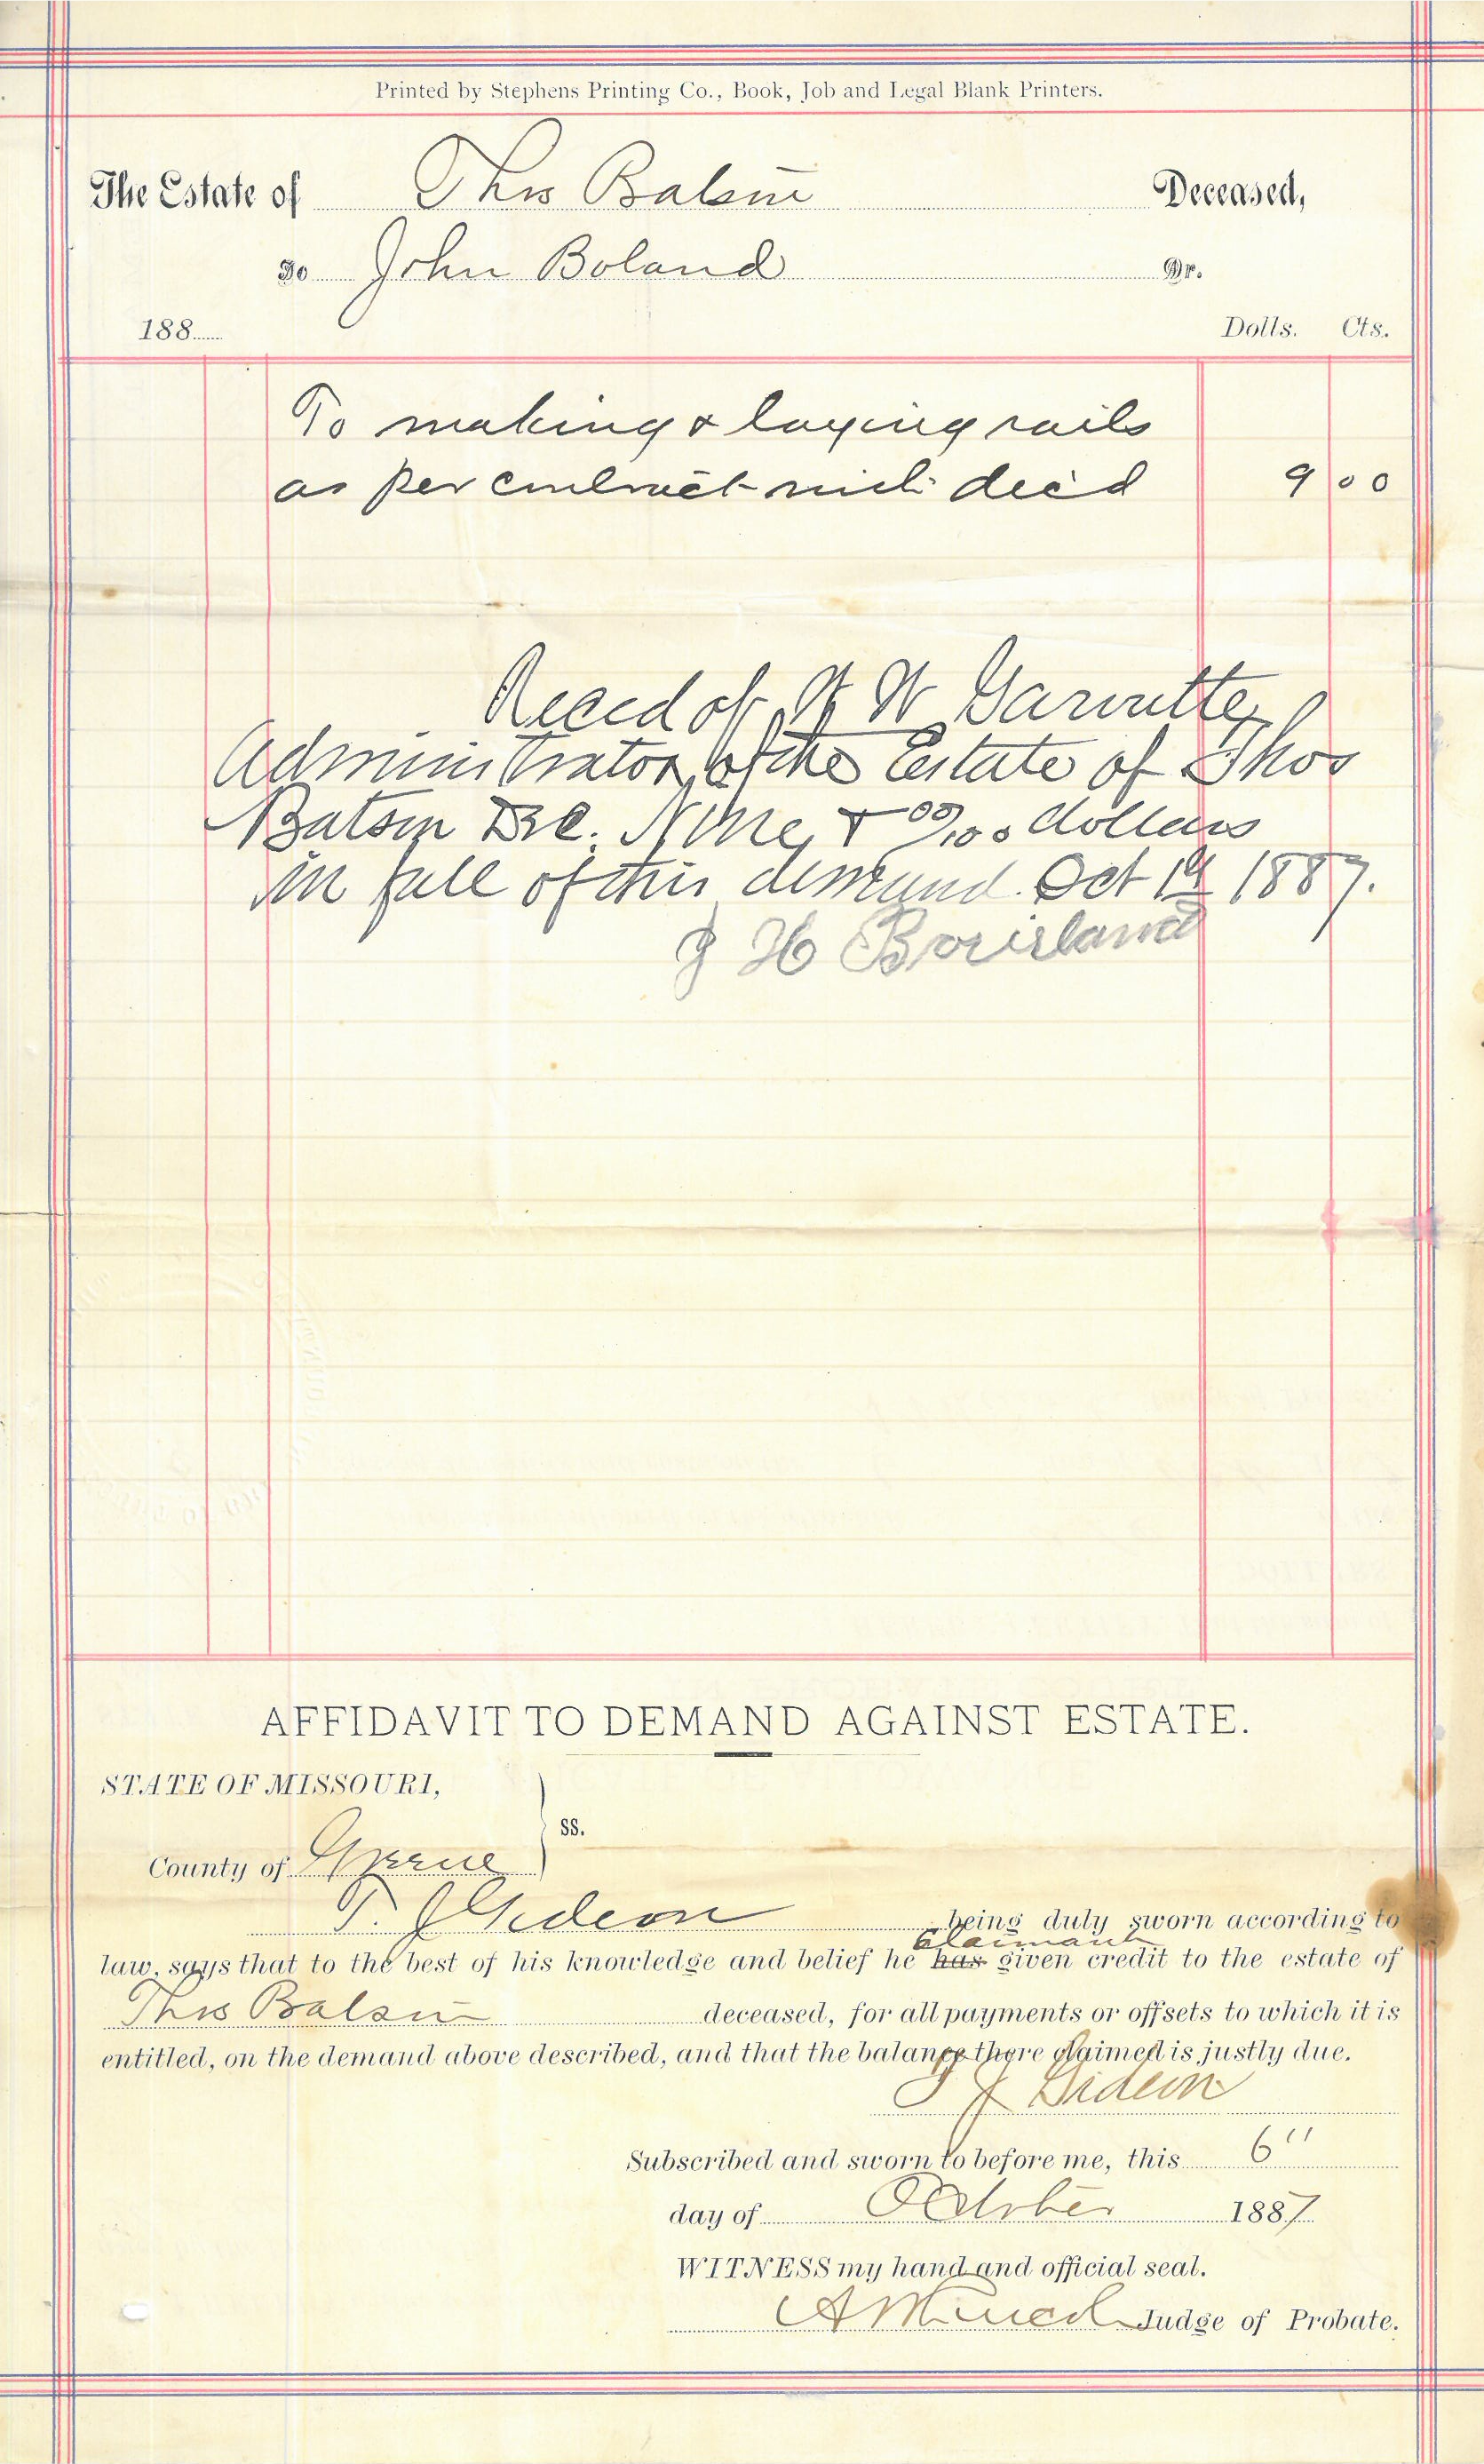 Printed by Stephens Printing Co., Book, Job and Legal Blank Printers.
The Estate of Thos Batson Deceased,
To John Boland Dr.
188 Dolls. Cts.
To making & laying rails
as per contract with dec'd 9 00
Recd of W Garoutte
Administrator of the Estate of Thos
Batson Dec. Nine & 00/100 dollars
in full of this demand. Oct 19 1887.
J H
AFFIDAVIT TO DEMAND AGAINST ESTATE.
STATE OF MISSOURI,
ss.
County of Greene
T. J Gideon being duly sworn according to
claimant
law, says that to the best of his knowledge and belief he has given credit to the estate of
Thos Batson deceased, for all payments or offsets to which it is
entitled, on the demand above described, and that the balance there claimed is justly due.
T J Gideon
Subscribed and sworn to before me, this 6"
day of October 1887
WITNESS my hand and official seal.
Judge of Probate.